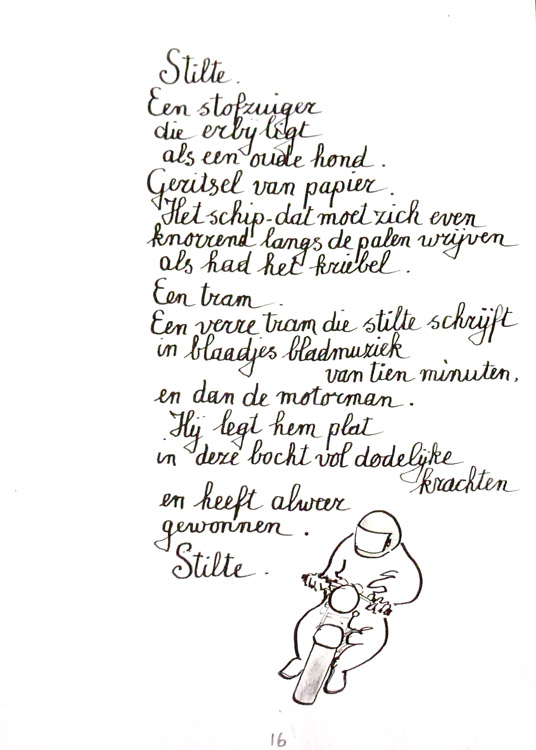 Stilte.
Een stofzuiger
die erbij ligt
als een oude hond.
Geritsel van papier.
Het schip-dat moet zich even
knorrend langs de palen wrijven
als had het kriebel.
Een tram.
Een verre tram die stilte schrijft
in blaadjes bladmuziek
van tien minuten,
en dan de motorman.
Hij legt hem plat
in deze bocht vol dodelijke
krachten
en heeft alweer
gewonnen.
Stilte.
16